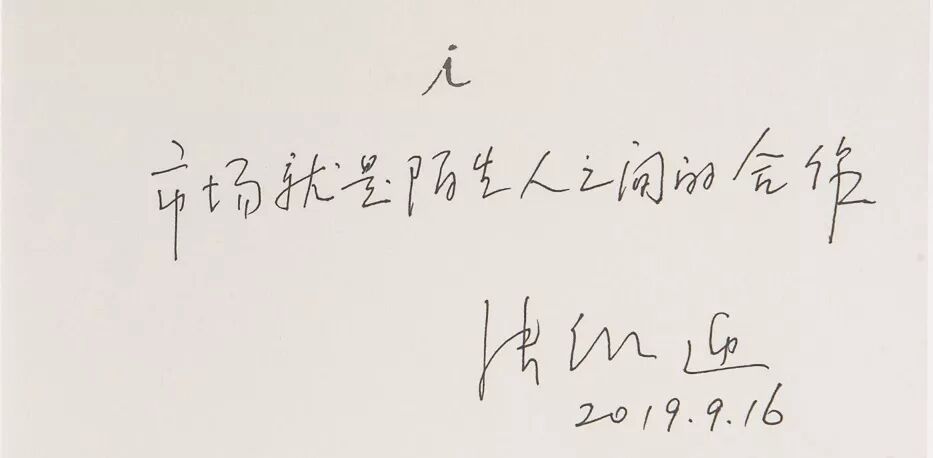 i
市场就是陌生人之间的合作
张维迎
2019.9.16